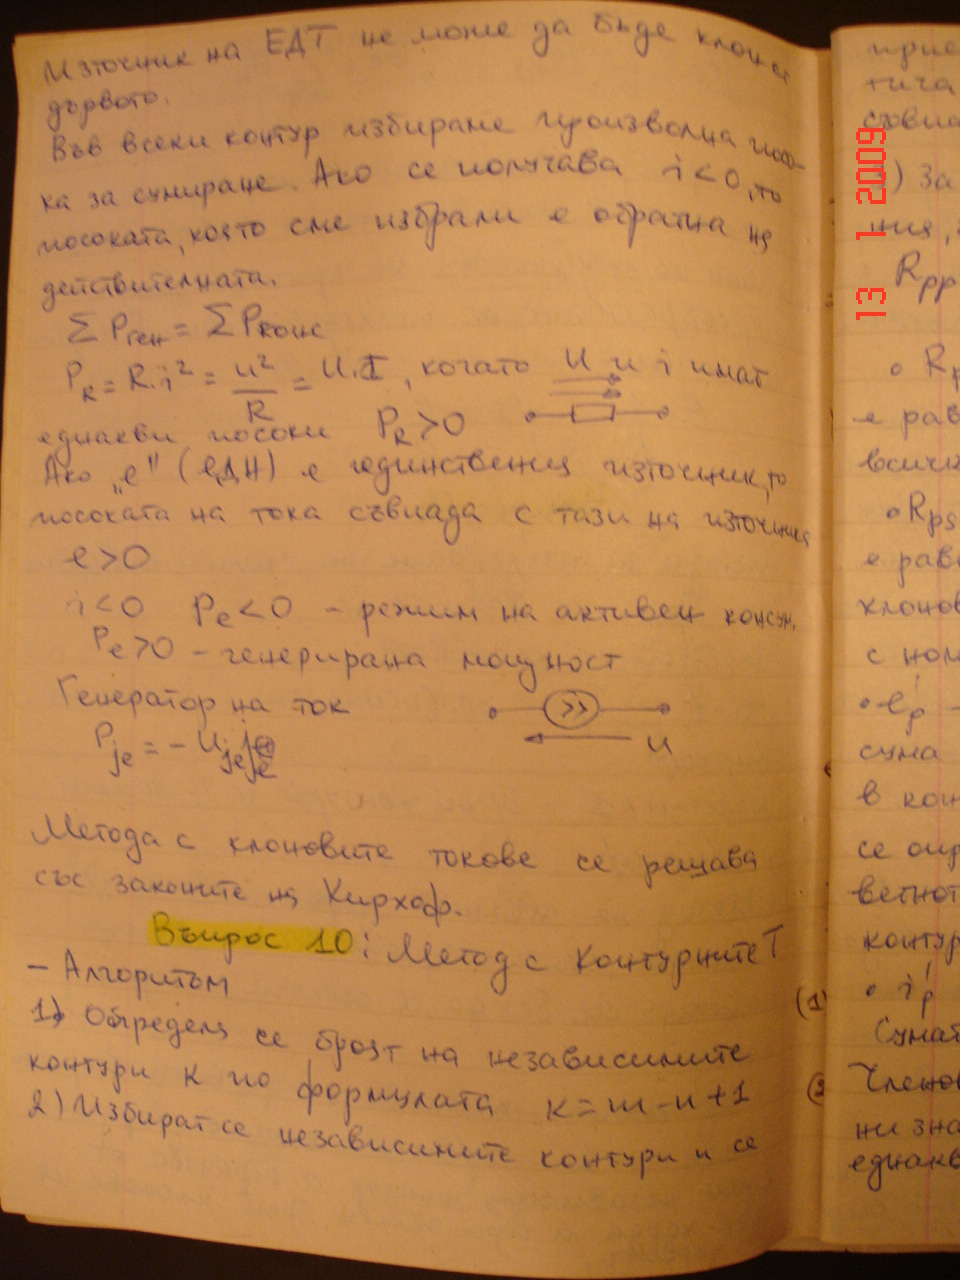 Източник на ЕДТ не може да бъде клон от
дървото.
Във всеки контур избираме произволна посо-
ка за сумиране. Ако се получава i<0, то
посоката, която сме избрали е обратна на
действителната.
∑ Pген = ∑ Pконс
P_R = R.i² = u²/R = U.I, когато U и i имат
еднакви посоки P_R>0
Ако „e" (ЕДН) е единствения източник, то
посоката на тока съвпада с тази на източника
e>0
i<0 Pe<0 – режим на активен консум.
Pe>0 – генерирана мощност
Генератор на ток
u
P_je = – U_je j_e
Метода с клоновите токове се решава
със законите на Кирхоф.
Въпрос 10: Метод с контурните Т
– Алгоритъм
1) Определя се броят на независимите
контури К по формулата к=m-n+1
2) Избират се независимите контури и се
3) За
ния,
Rpp
• Rp
е рав
всич
• Rps
е рав
клонов
с ном
• e'p –
сума
в кон
се опр
ветнот
контур
(1) • i'p
Сумат
(2) Членов
ни зна
еднакв
13 1 2009